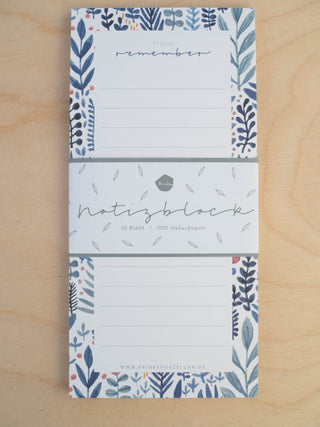 Please
remember
Notizblock
50 Blatt / 100% Naturpapier
WWW.KRINKEPORZELLAN.DE